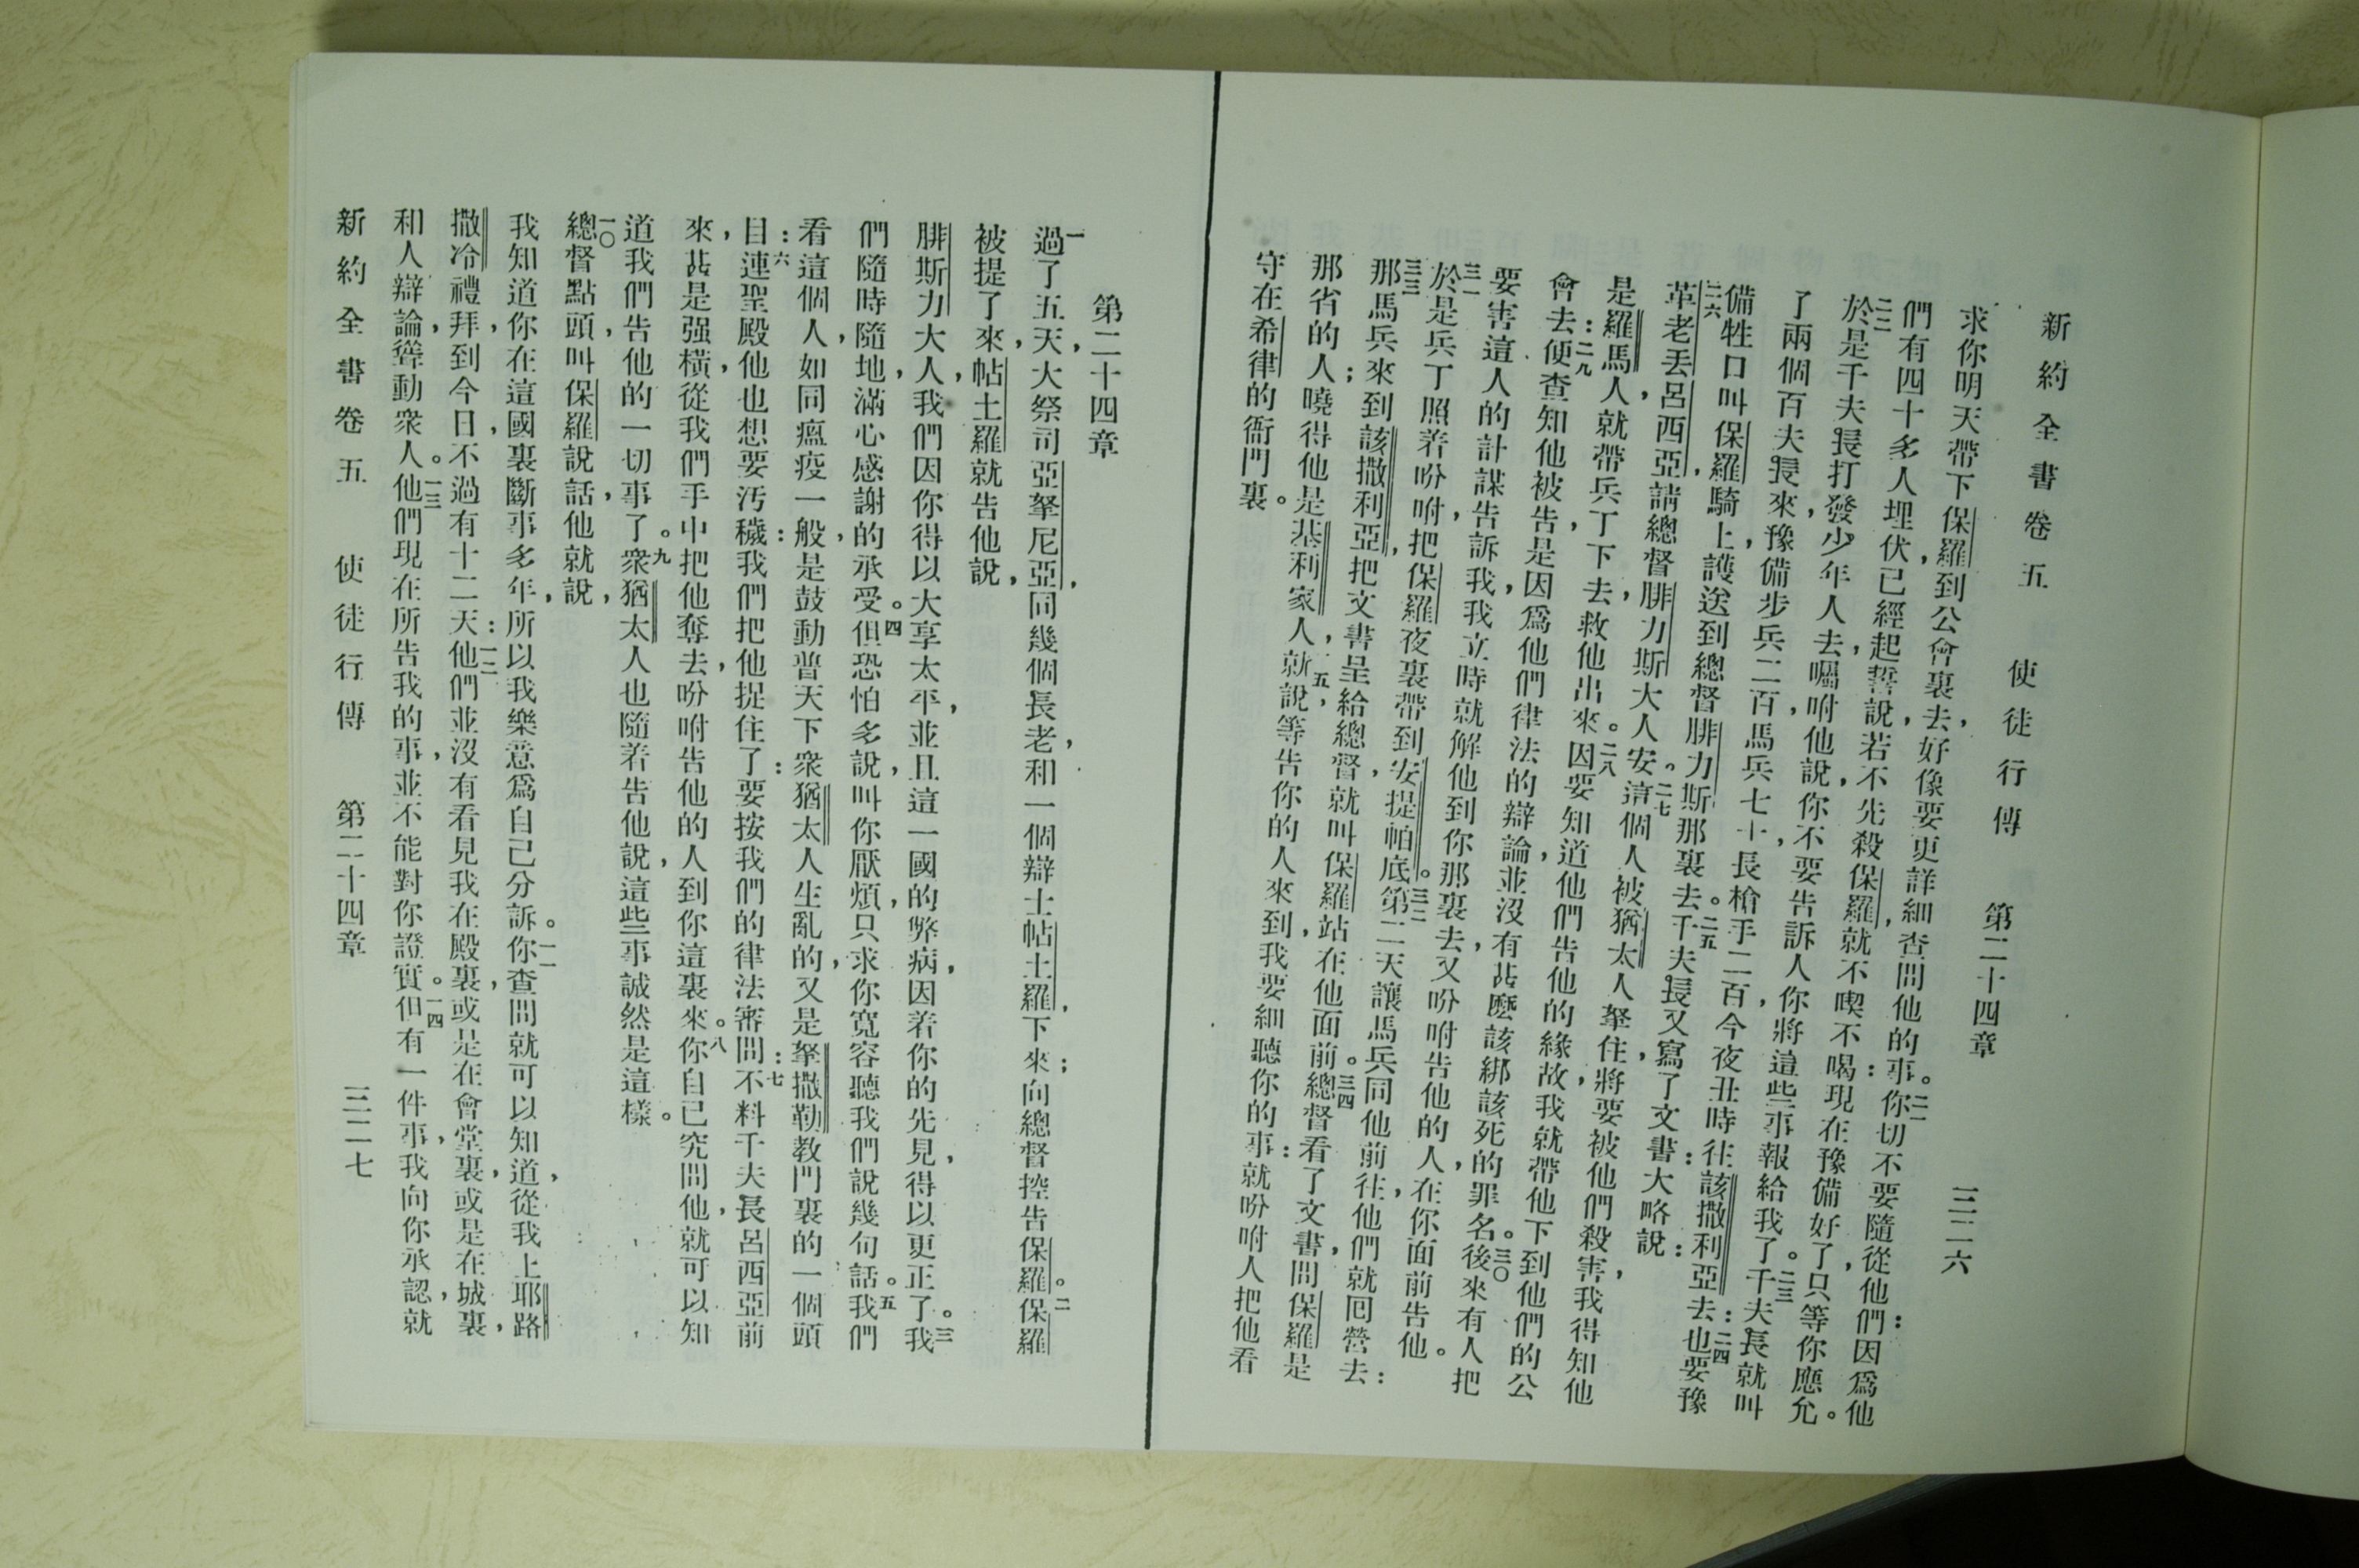 新約全書卷五　使徒行傳　第二十四章　三二六
求你明天帶下保羅到公會裏去好像要更詳細查問他的事。二一你切不要隨從他們因爲他
們有四十多人埋伏已經起誓說若不先殺保羅就不喫不喝現在豫備好了只等你應允。
二二於是千夫長打發少年人去囑咐他說你不要告訴人你將這些事報給我了。二三千夫長就叫
了兩個百夫長來豫備步兵二百馬兵七十長槍手二百今夜丑時往該撒利亞去二四也要豫
備牲口叫保羅騎上護送到總督腓力斯那裏去。二五千夫長又寫了文書大略說
二六革老丟呂西亞請總督腓力斯大人安。二七這個人被猶太人拏住將要被他們殺害我得知他
是羅馬人就帶兵丁下去救他出來。二八因要知道他們告他的緣故我就帶他下到他們的公
會去二九便查知他被告是因爲他們律法的辯論並沒有甚麼該綁該死的罪名。三〇後來有人把
要害這人的計謀告訴我我立時就解他到你那裏去又吩咐告他的人在你面前告他。
三一於是兵丁照着吩咐把保羅夜裏帶到安提帕底。三二第二天讓馬兵同他前往他們就囘營去
三三那馬兵來到該撒利亞把文書呈給總督就叫保羅站在他面前。三四總督看了文書問保羅是
那省的人曉得他是基利家人三五就說等告你的人來到我要細聽你的事就吩咐人把他看
守在希律的衙門裏。
第二十四章
一過了五天大祭司亞拏尼亞同幾個長老和一個辯士帖土羅下來向總督控告保羅。二保羅
被提了來帖土羅就告他說
腓斯力大人我們因你得以大享太平並且這一國的弊病因着你的先見得以更正了。三我
們隨時隨地滿心感謝的承受。四但恐怕多說叫你厭煩只求你寬容聽我們說幾句話。五我們
看這個人如同瘟疫一般是鼓動普天下衆猶太人生亂的又是拏撒勒教門裏的一個頭
目六連聖殿他也想要汚穢我們把他捉住了要按我們的律法審問七不料千夫長呂西亞前
來甚是强橫從我們手中把他奪去吩咐告他的人到你這裏來。八你自己究問他就可以知
道我們告他的一切事了。九衆猶太人也隨着告他說這些事誠然是這樣。
一〇總督點頭叫保羅說話他就說
我知道你在這國裏斷事多年所以我樂意爲自己分訴。一一你查問就可以知道從我上耶路
撒冷禮拜到今日不過有十二天一二他們並沒有看見我在殿裏或是在會堂裏或是在城裏
和人辯論聳動衆人。一三他們現在所告我的事並不能對你證實。一四但有一件事我向你承認就
新約全書卷五　使徒行傳　第二十四章　三二七